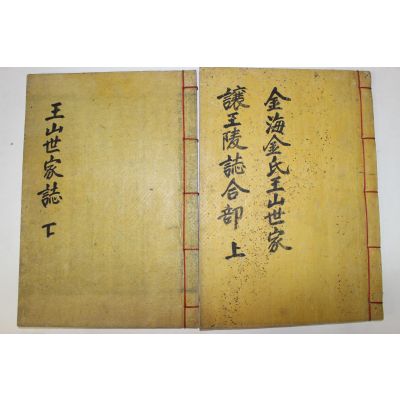 金海金氏王山世家
讓王陵誌合部 上
王山世家誌 下